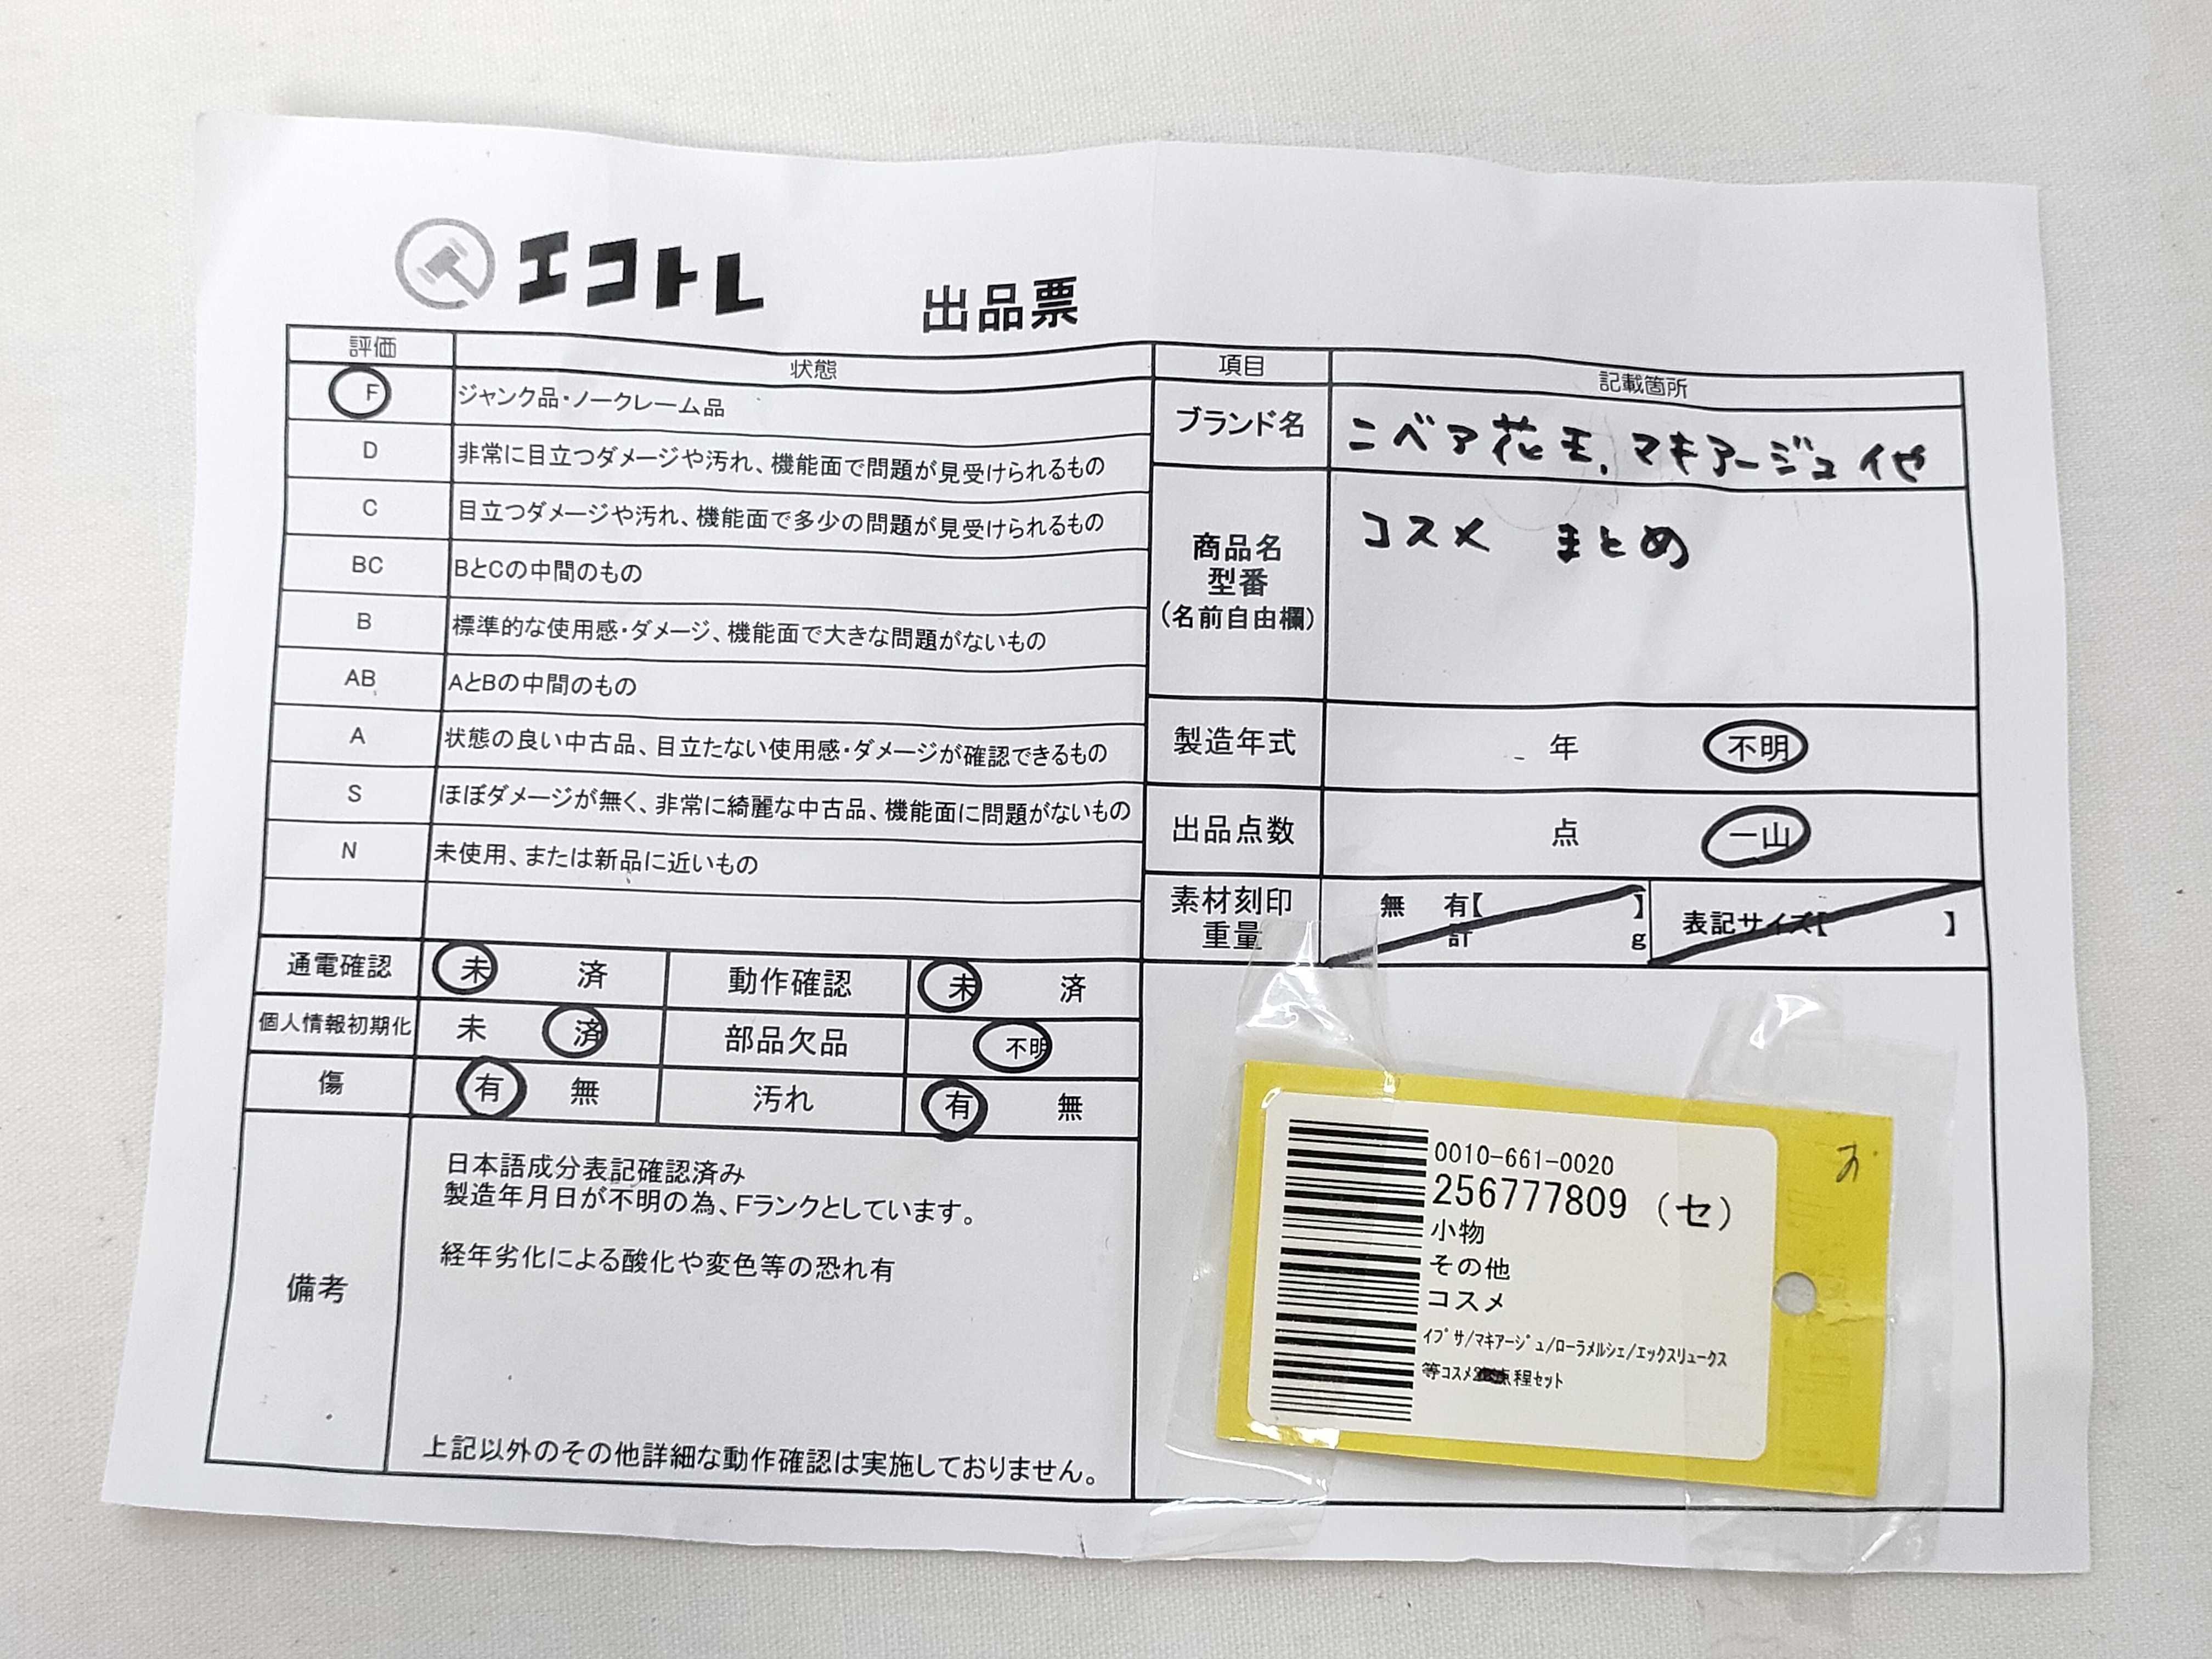 エコトレ
出品票
評価 状態
F ジャンク品・ノークレーム品
D 非常に目立つダメージや汚れ、機能面で問題が見受けられるもの
C 目立つダメージや汚れ、機能面で多少の問題が見受けられるもの
BC BとCの中間のもの
B 標準的な使用感・ダメージ、機能面で大きな問題がないもの
AB AとBの中間のもの
A 状態の良い中古品、目立たない使用感・ダメージが確認できるもの
S ほぼダメージが無く、非常に綺麗な中古品、機能面に問題がないもの
N 未使用、または新品に近いもの
通電確認 未 済 動作確認 未 済
個人情報初期化 未 済 部品欠品 不明
傷 有 無 汚れ 有 無
備考
日本語成分表記確認済み
製造年月日が不明の為、Fランクとしています。
経年劣化による酸化や変色等の恐れ有
上記以外のその他詳細な動作確認は実施しておりません。
項目 記載箇所
ブランド名 ニベア花王、マキアージュ 他
商品名
型番
(名前自由欄)
コスメ まとめ
製造年式 年 不明
出品点数 点 一山
素材刻印
重量
無 有【 】
計 g
表記サイズ【 】
0010-661-0020
256777809 (セ)
小物
その他
コスメ
イプサ/マキアージュ/ローラメルシェ/エックスリュークス
等コスメ 程セット